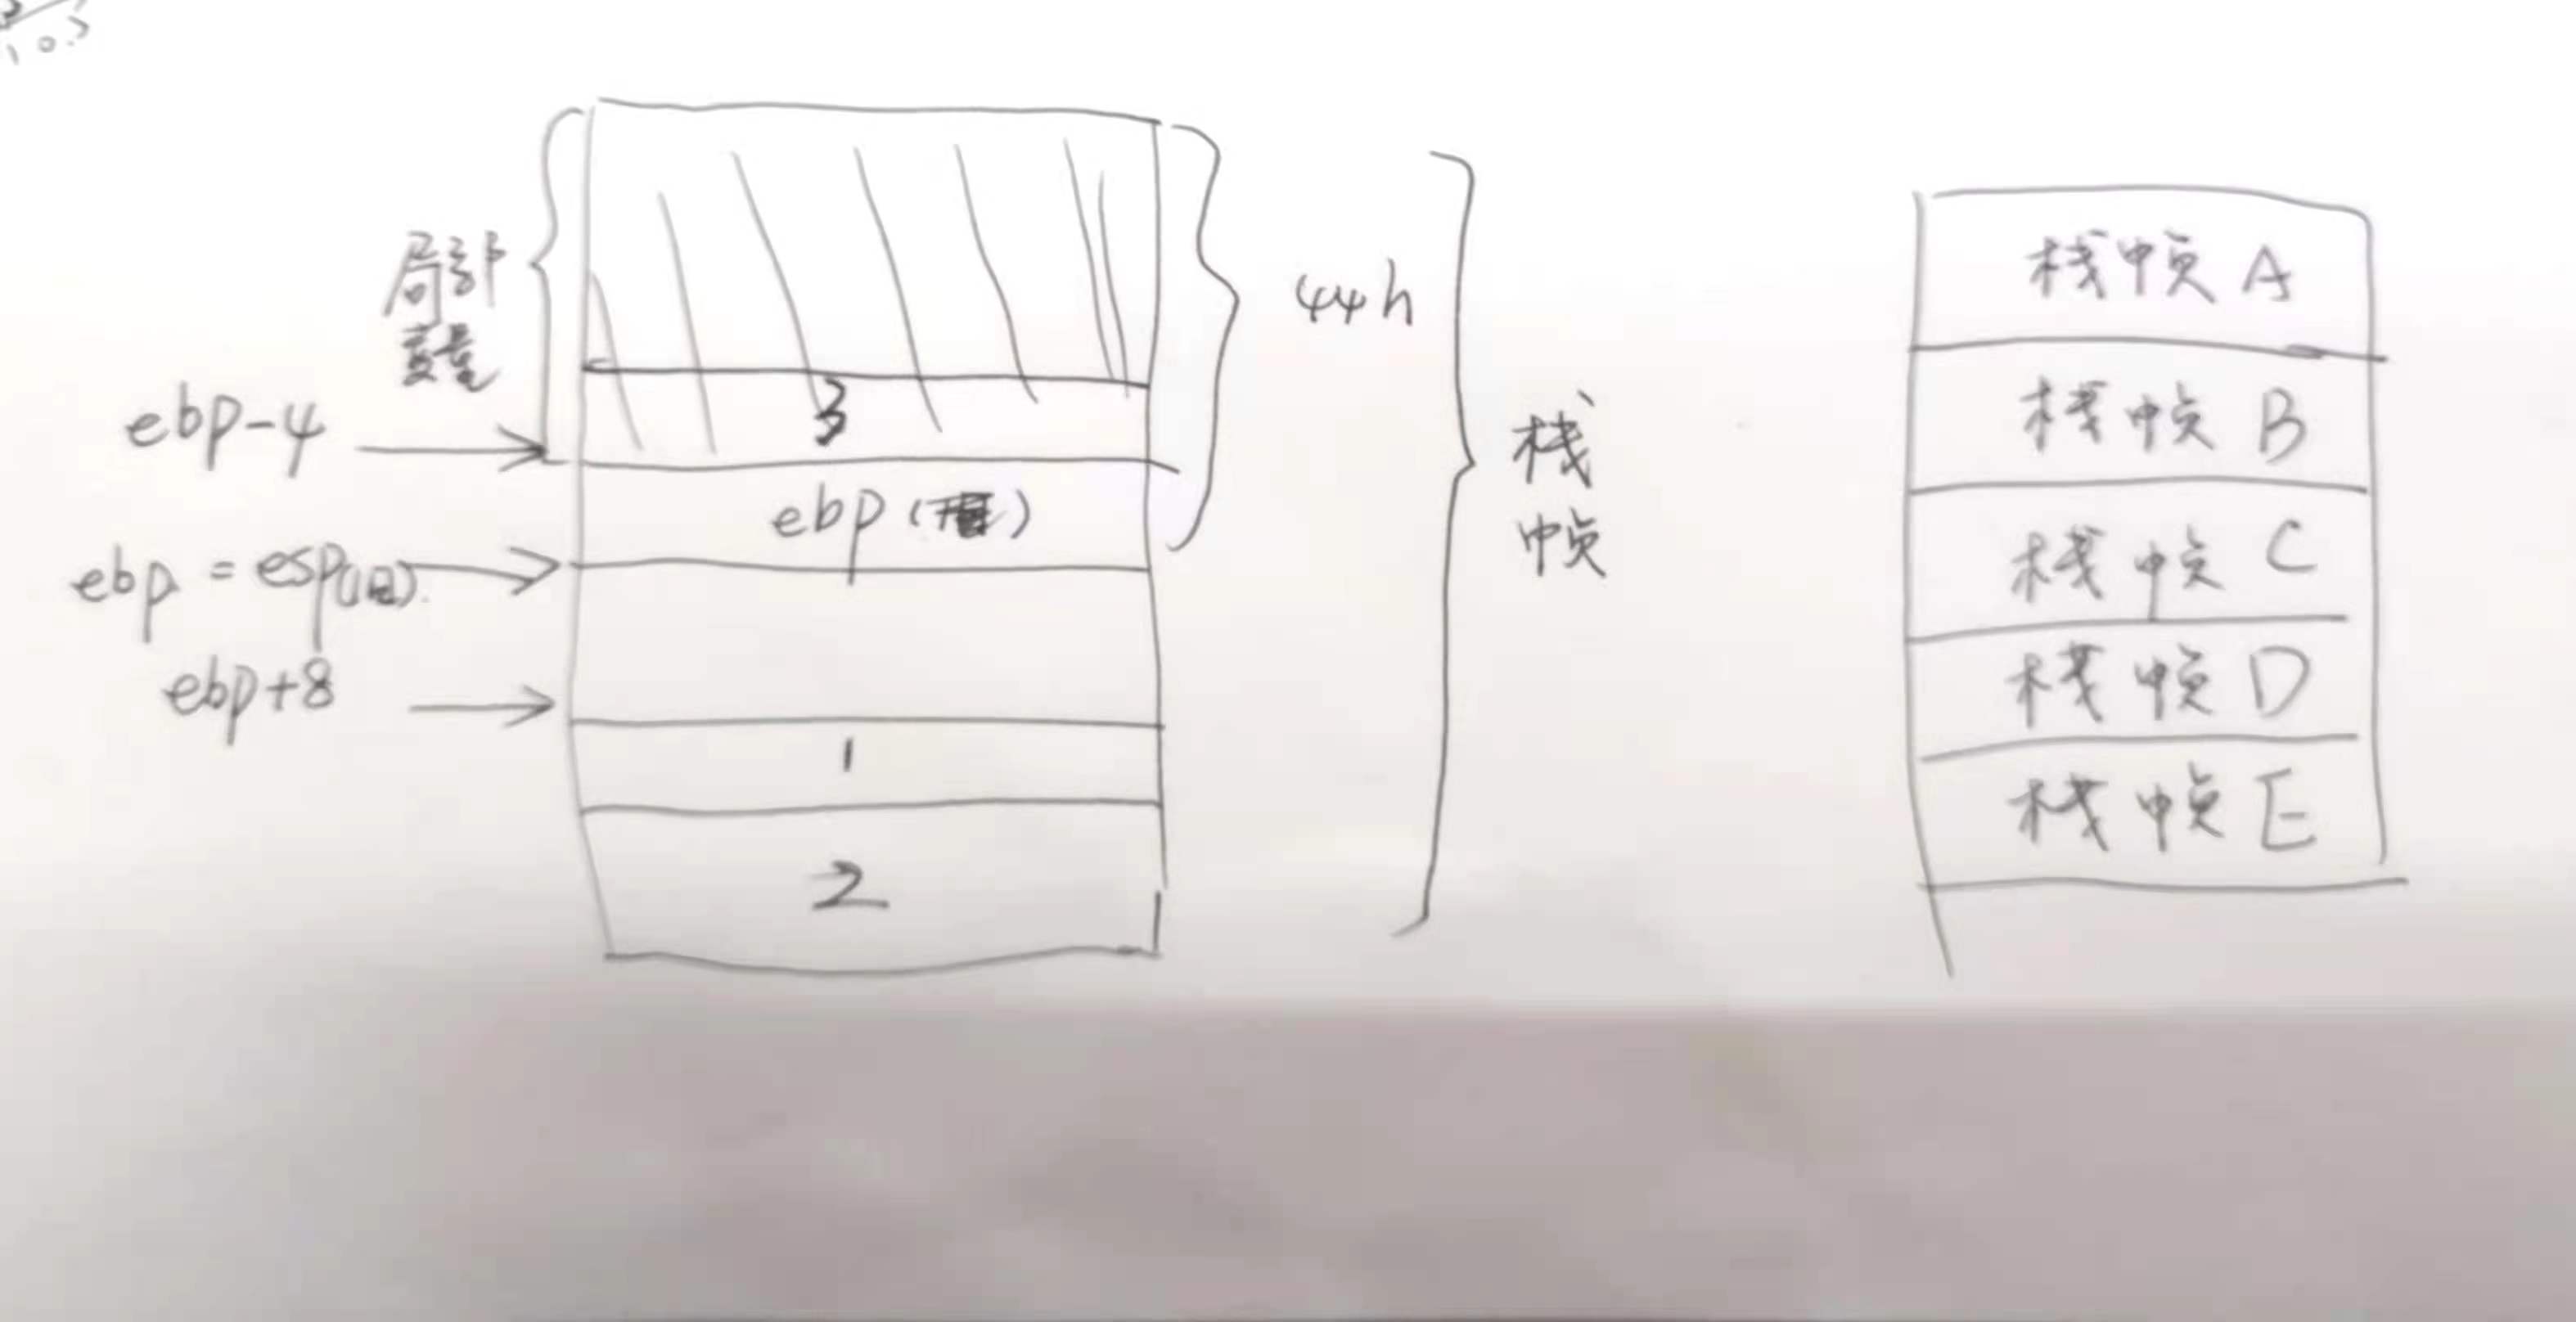 局部
变量
ebp-4
3
ebp
ebp = esp(旧)
ebp+8
1
2
44h
栈
帧
栈帧 A
栈帧 B
栈帧 C
栈帧 D
栈帧 E